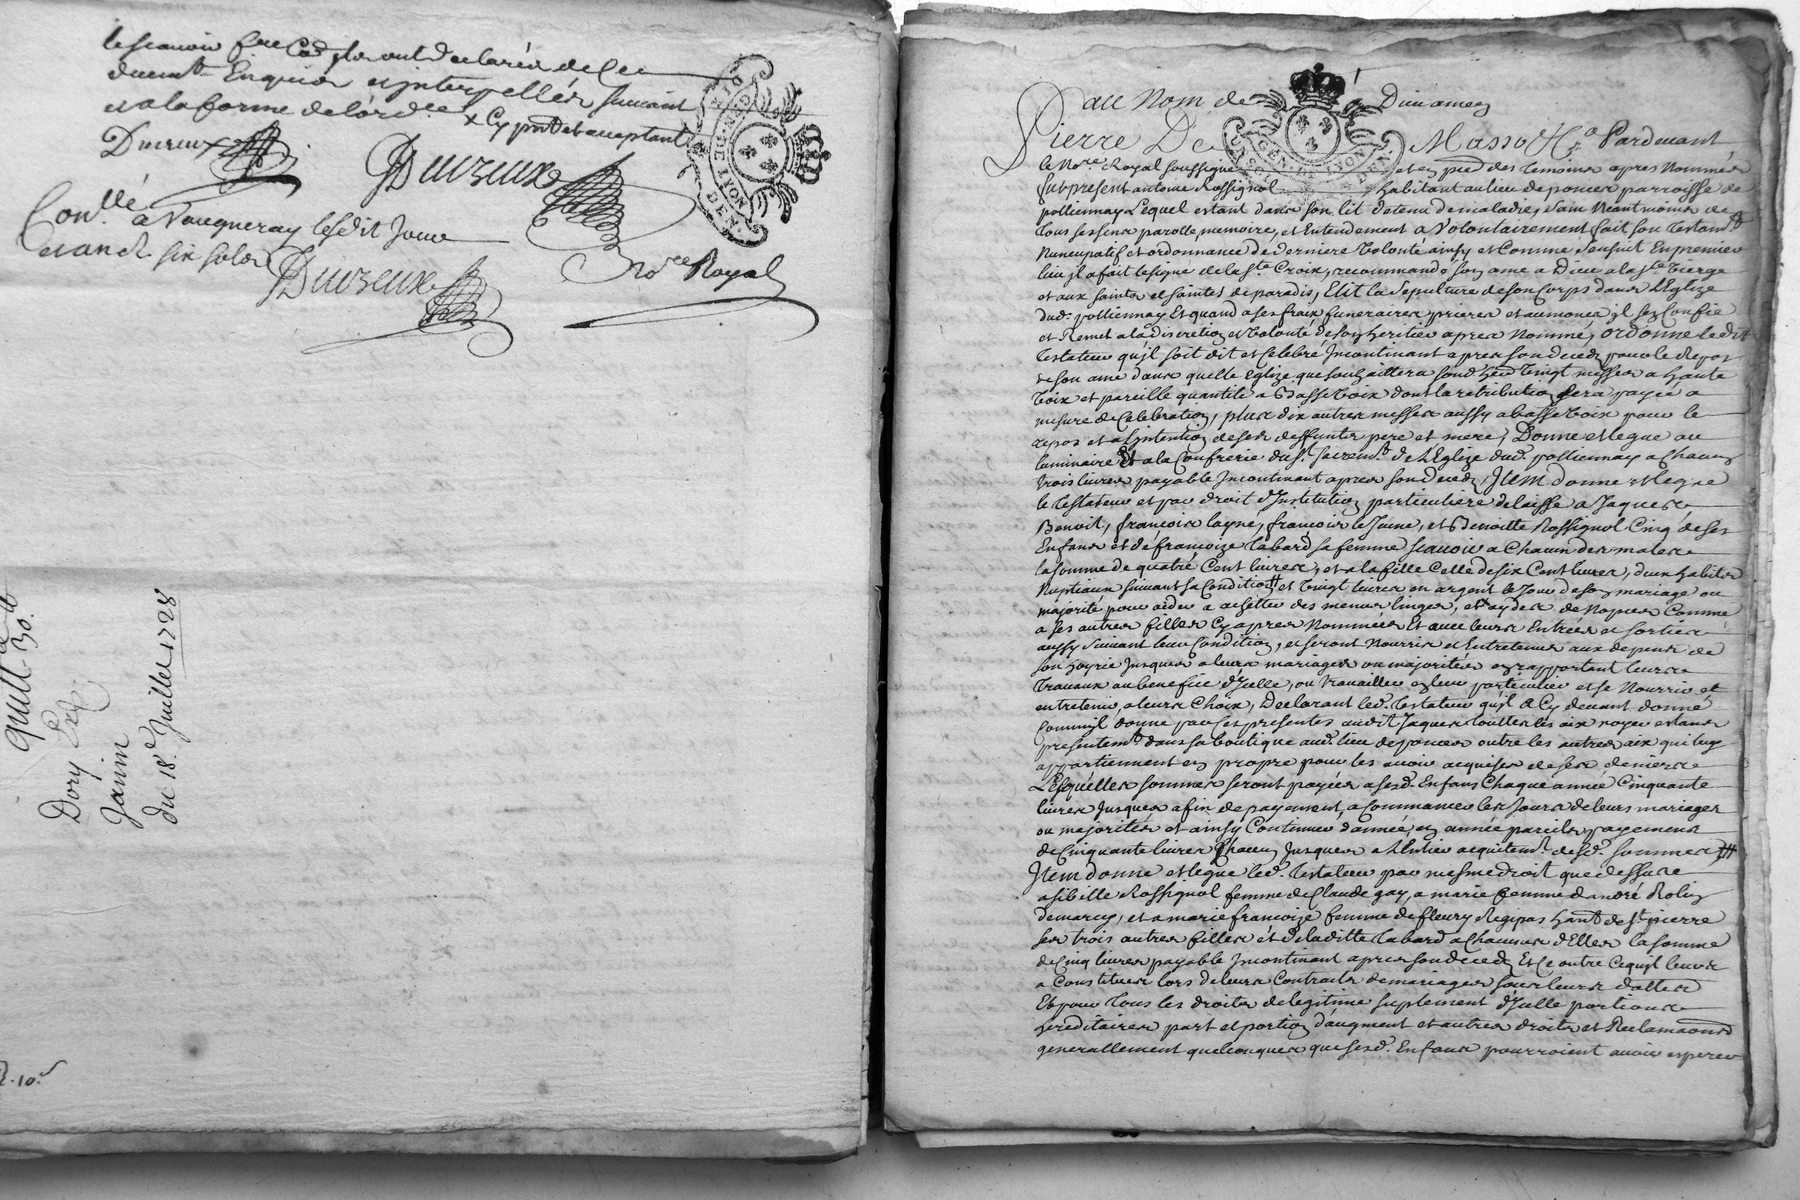 lescauoir fue Cod. Ils ont declarés de Ce
duemt. Enquis et Interpellés suiuant
et a la forme de l'ord.ce x Cy pnt et acceptant
Duereux
Duereux
Con.llé
a Vaugneray lesdit Jour
et an d. six sols
Duereux
No.re Royal
GEN. DE LYON
quitt. 30.#
Dory
Janin
du 18.e Juillet 1728
10.s
au Nom de Dieu amen
Pierre De Masso &a Pardeuant
le No.re Royal soussigné et en pnce des Temoins apres Nommés
fut present antoine Rossignol habitant au lieu de ponces parroisse de
polliennay Lequel estant dans son lit detenu de maladie, sain Neantmoins de
tous ses sens parolle, memoire, et Entendement a Volontairement fait son testam.t
Nuncupatif et ordonnance de derniere Volonté ainsy et Comme s'ensuit En premier
lieu jl a fait le signe de la s.te Croix, recommandé son ame a Dieu a la s.te Vierge
et aux saints et saintes de paradis, Elit la sepulture de son Corps dans L'Eglize
dud. polliennay Et quand a ses frais funeraires prieres et aumones jl s'en Confie
et Remet a la discretion et Volonté de son heritier apres Nommé, ordonne ledit
testateur qu'jl soit dit et Celebré Incontinant apres son deced pour le Repos
de son ame dans quelle Eglize que souhaittera sond. her. Vingt messes a haute
Voix et pareille quantité a Basse Voix dont la retribution sera payée a
mesure de Celebration, plus dix autres messes aussy a basse Voix pour le
repos et a l'jntention de ses deffunts pere et mere, Donne et legue au
luminaire Et a la Confrerie du s.t Sacrem.t de L'Eglize dud. polliennay a Chacun
trois liures payable Incontinant apres son deced, Item donne et legue
le testateur et par droit d'Institution particuliere delaisse a Jaques
Benoit, françois layné, françois le Jeune, et Benoitte Rossignol Cinq de ses
Enfans et de françoize Tabard sa femme scauoir a Chacun des males
la somme de quatre Cent liures, et a la fille Celle de six Cent liures, d'un habits
Nuptiaux suiuant sa Condition et Vingt liures en argent le Jour de son mariage ou
majorité pour aider a achetter des menus linges, et
a ses autres filles Cy apres Nommées Et auec leurs Entrées et sorties
aussy suiuant leur Condition, et seront Nourris et Entretenus aux depens de
son hoyrie Jusques a leurs mariages ou majorités en rapportant leurs
trauaux au benefice d'Jcelle, ou trauailler en leur particulier et se Nourrir et
entretenir a leurs Choix, Declarant led. testateur qu'jl a Cy deuant donné
Comm'jl donne par ses presentes audit Jaques touttes les aix noyer estans
presentem.t dans sa boutique aud. lieu de ponces outre les autres aix qui luy
appartiennent en propre pour les auoir acquises de ses deniers
Lesquelles sommes seront payées a sesd. Enfans Chaque année Cinquante
liures Jusques a fin de payement, a Commancer les Jours de leurs mariages
ou majorités et ainsy Continuer d'année en année pareils payemens
de Cinquante liures Chacun Jusques a L'Entier acquitem.t desd. sommes
Item donne et legue led. testateur par mesme droit que dessus
a sibille Rossignol femme de Claude gay, a marie femme d'andré Rolin
demarcy, et a marie françoize femme de fleury Regipas hant de st. pierre
ses trois autres filles et de laditte Tabard a Chacunes d'Elles la somme
de Cinq liures payable Incontinant apres son deced, Et Ce outre Cequ'jl leurs
a Constitués lors de leurs Contracts de mariages
Et pour tous les droits de legitime suplement d'jcelle portions
hereditaires part et portion d'augment et autres droits et Reclamaons
generallement quelconques que sesd. Enfans pourroient auoir esperer